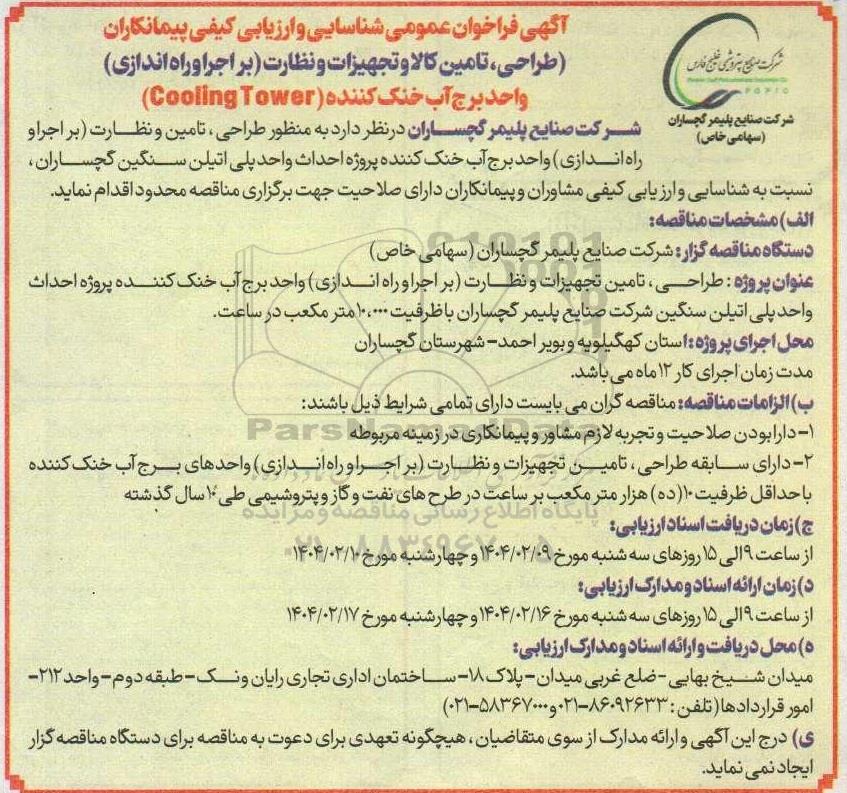 آگهی فراخوان عمومی شناسایی و ارزیابی کیفی پیمانکاران
(طراحی، تامین کالا و تجهیزات و نظارت (بر اجرا و راه اندازی)
واحد برج آب خنک کننده (Cooling Tower)
شرکت صنایع پتروشیمی خلیج فارس
PGPIC
شرکت صنایع پلیمر گچساران
(سهامی خاص)
شرکت صنایع پلیمر گچساران درنظر دارد به منظور طراحی، تامین و نظارت (بر اجرا و
راه اندازی) واحد برج آب خنک کننده پروژه احداث واحد پلی اتیلن سنگین گچساران،
نسبت به شناسایی و ارزیابی کیفی مشاوران و پیمانکاران دارای صلاحیت جهت برگزاری مناقصه محدود اقدام نماید.
الف) مشخصات مناقصه:
دستگاه مناقصه گزار: شرکت صنایع پلیمر گچساران (سهامی خاص)
عنوان پروژه: طراحی، تامین تجهیزات و نظارت (بر اجرا و راه اندازی) واحد برج آب خنک کننده پروژه احداث
واحد پلی اتیلن سنگین شرکت صنایع پلیمر گچساران با ظرفیت ۱۰,۰۰۰ متر مکعب در ساعت.
محل اجرای پروژه: استان کهگیلویه و بویر احمد- شهرستان گچساران
مدت زمان اجرای کار ۱۲ ماه می باشد.
ب) الزامات مناقصه: مناقصه گران می بایست دارای تمامی شرایط ذیل باشند:
۱- دارا بودن صلاحیت و تجربه لازم مشاور و پیمانکاری در زمینه مربوطه
۲- دارای سابقه طراحی، تامین تجهیزات و نظارت (بر اجرا و راه اندازی) واحدهای برج آب خنک کننده
با حداقل ظرفیت ۱۰ (ده) هزار متر مکعب بر ساعت در طرح های نفت و گاز و پتروشیمی طی ۱۰ سال گذشته
ج) زمان دریافت اسناد ارزیابی:
از ساعت ۹ الی ۱۵ روزهای سه شنبه مورخ ۱۴۰۴/۰۲/۰۹ و چهارشنبه مورخ ۱۴۰۴/۰۲/۱۰
د) زمان ارائه اسناد و مدارک ارزیابی:
از ساعت ۹ الی ۱۵ روزهای سه شنبه مورخ ۱۴۰۴/۰۲/۱۶ و چهارشنبه مورخ ۱۴۰۴/۰۲/۱۷
ه) محل دریافت و ارائه اسناد و مدارک ارزیابی:
میدان شیخ بهایی -ضلع غربی میدان- پلاک ۱۸- ساختمان اداری تجاری رایان ونک- طبقه دوم- واحد ۲۱۲-
امور قراردادها (تلفن: ۸۶۰۹۲۶۳۳-۰۲۱ و ۵۸۳۶۷۰۰۰-۰۲۱)
ی) درج این آگهی و ارائه مدارک از سوی متقاضیان، هیچگونه تعهدی برای دعوت به مناقصه برای دستگاه مناقصه گزار
ایجاد نمی نماید.
ParsNamadData
پایگاه اطلاع رسانی مناقصه و مزایده
۰۲۱-۸۸۳۴۹۶۷۰-۵